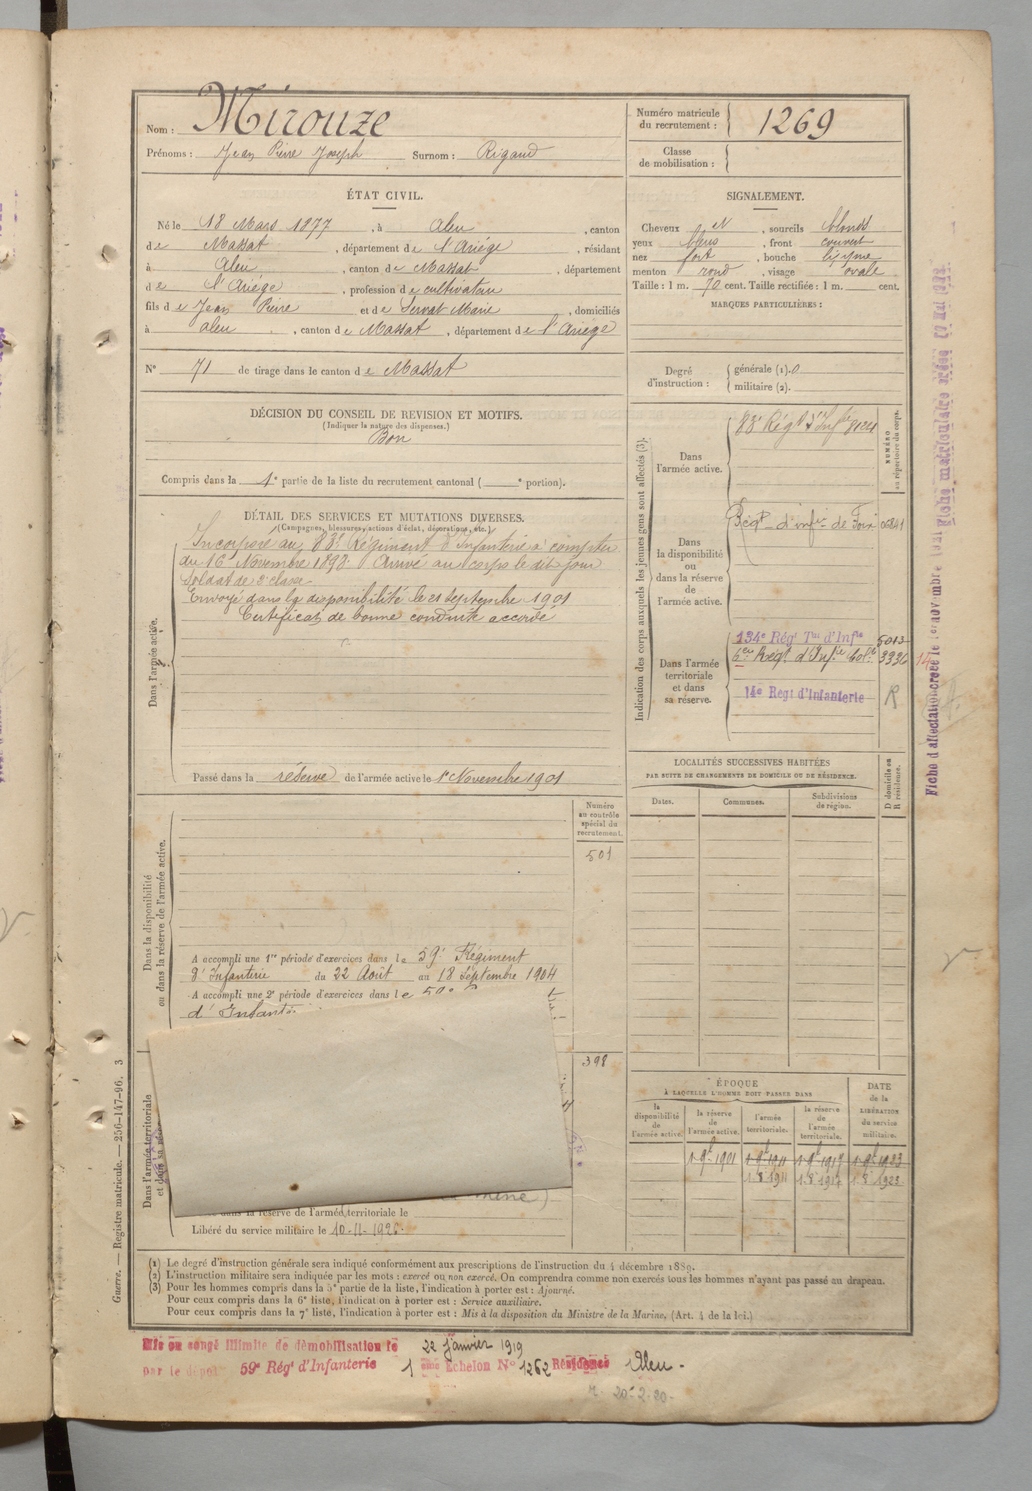 Nom : Mirouze
Prénoms : Jean Pierre Joseph Surnom : Rigaud
Numéro matricule du recrutement : 1269
Classe de mobilisation :
ÉTAT CIVIL.
Né le 18 Mars 1877, à Aleu, canton
de Massat, département de l'Ariége, résidant
à Aleu, canton de Massat, département
de l'Ariége, profession de cultivateur
fils de Jean Pierre et de Servat Marie, domiciliés
à aleu, canton de Massat, département de l'Ariége
N° 71 de tirage dans le canton de Massat
SIGNALEMENT.
Cheveux N, sourcils blonds
yeux bleus, front couvert
nez fort, bouche
menton rond, visage ovale
Taille : 1 m. 70 cent. Taille rectifiée : 1 m. cent.
MARQUES PARTICULIÈRES :
Degré d'instruction :
générale (1). 0
militaire (2).
DÉCISION DU CONSEIL DE REVISION ET MOTIFS.
(Indiquer la nature des dispenses.)
Bon
Compris dans la 1e partie de la liste du recrutement cantonal ( e portion).
DÉTAIL DES SERVICES ET MUTATIONS DIVERSES.
(Campagnes, blessures, actions d'éclat, décorations, etc.)
Dans l'armée active.
Incorporé au 83e Régiment d'Infanterie à compter
du 16 Novembre 1898. Arrivé au corps le dit jour
Soldat de 2e classe
Envoyé dans la disponibilité le 21 septembre 1901
Certificat de bonne conduite accordé
Passé dans la réserve de l'armée active le 1er Novembre 1901
Indication des corps auxquels les jeunes gens sont affectés (3).
NUMÉRO au répertoire du corps.
Dans l'armée active.
83e Régt d'Infie 8124
Dans la disponibilité ou dans la réserve de l'armée active.
Régt d'infie de Foix
Dans l'armée territoriale et dans sa réserve.
134e Régt Tal d'Infie 5013
6e Régt d'Infie Cole 3336
14
14e Regt d'Infanterie R
LOCALITÉS SUCCESSIVES HABITÉES
PAR SUITE DE CHANGEMENTS DE DOMICILE OU DE RÉSIDENCE.
Dates. Communes. Subdivisions de région. D domicile ou R résidence.
Numéro au contrôle spécial du recrutement.
501
Dans la disponibilité ou dans la réserve de l'armée active.
A accompli une 1re période d'exercices dans le 59e Régiment
d'Infanterie du 22 Août au 18 Septembre 1904
A accompli une 2e période d'exercices dans le 59e
d'Infant
398
Dans l'armée territoriale et dans sa réserve
la réserve de l'armée territoriale le
Libéré du service militaire le 10-11-1926
ÉPOQUE
À LAQUELLE L'HOMME DOIT PASSER DANS
la disponibilité de l'armée active.
la réserve de l'armée active.
l'armée territoriale.
la réserve de l'armée territoriale.
DATE de la LIBÉRATION du service militaire.
1 9bre 1901 1 9bre 1911 1 9bre 1917 1 9bre 1923
1.8 1911 1.8 1917 1.8 1923
(1) Le degré d'instruction générale sera indiqué conformément aux prescriptions de l'instruction du 4 décembre 1889.
(2) L'instruction militaire sera indiquée par les mots : exercé ou non exercé. On comprendra comme non exercés tous les hommes n'ayant pas passé au drapeau.
(3) Pour les hommes compris dans la 5e partie de la liste, l'indication à porter est : Ajourné.
Pour ceux compris dans la 6e liste, l'indication à porter est : Service auxiliaire.
Pour ceux compris dans la 7e liste, l'indication à porter est : Mis à la disposition du Ministre de la Marine. (Art. 4 de la loi.)
Guerre. — Registre matricule. — 256-147-96. 3
Mis en congé illimité de démobilisation le 22 janvier 1919
par le dépôt 59e Régt d'Infanterie 1 ème Echelon N° 1262 Résidence Aleu
20-2-20-